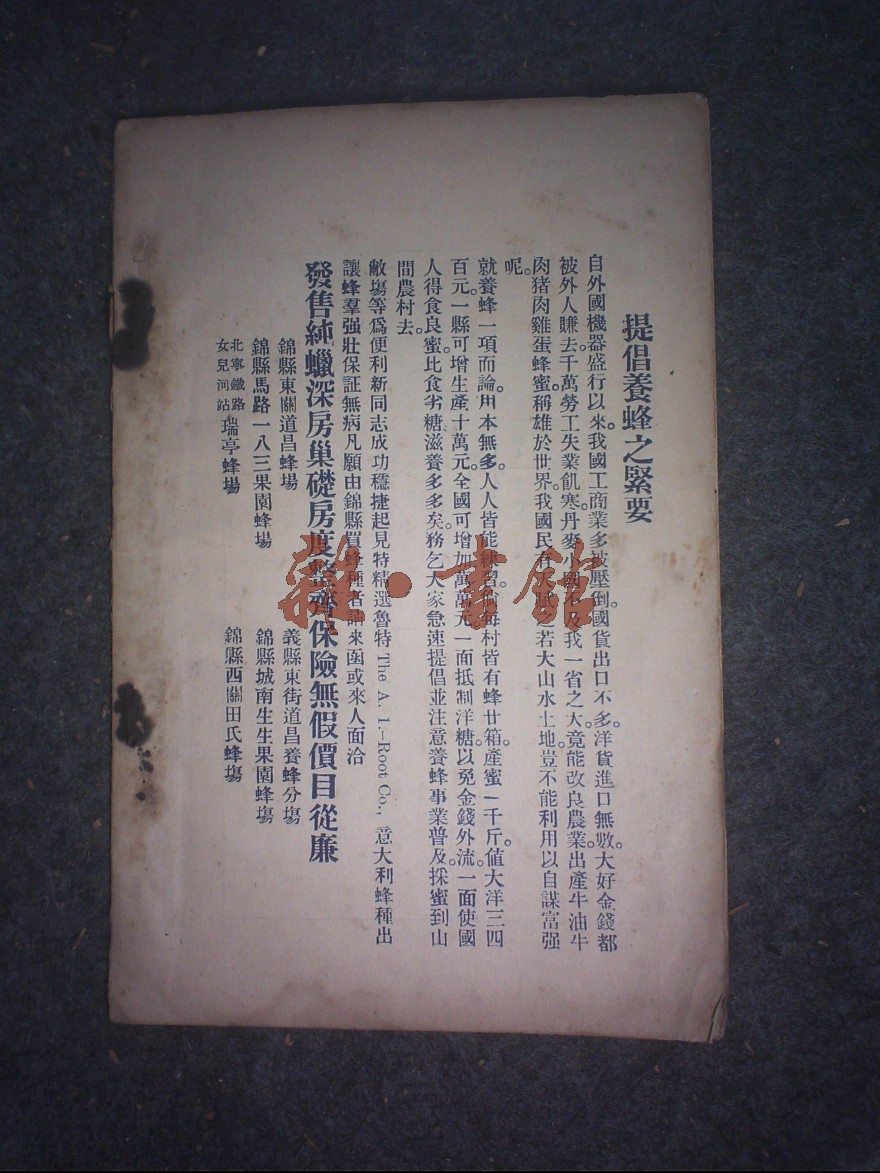 提倡養蜂之緊要
自外國機器盛行以來。我國工商業多被壓倒。國貨出口不多。洋貨進口無數。大好金錢都
被外人賺去。千萬勞工失業飢寒。丹麥小國不及我一省之大。竟能改良農業。出產牛油牛
肉猪肉雞蛋蜂蜜。稱雄於世界。我國民有若大山水土地豈不能利用以自謀富强
呢。
就養蜂一項而論。用本無多。人人皆能練習。每村皆有蜂廿箱。產蜜一千斤。値大洋三四
百元。一縣可增生產十萬元。全國可增加萬萬元。一面抵制洋糖以免金錢外流。一面使國
人得食良蜜。比食劣糖滋養多多矣。務乞大家急速提倡並注意養蜂事業普及。採蜜到山
間農村去。
敝塲等爲便利新同志成功穩捷起見特精選魯特 The A. I.-Root Co., 意大利蜂種出
讓蜂羣强壯保証無病凡願由錦縣買蜂種者請來函或來人面洽
發售純蠟深房巢礎房度整齊保險無假價目從廉
錦縣東關道昌蜂塲
義縣東街道昌養蜂分塲
錦縣馬路一八三果園蜂塲
錦縣城南生生果園蜂塲
北寧鐵路女兒河站瑞亭蜂塲
錦縣西關田氏蜂塲
雜·書館